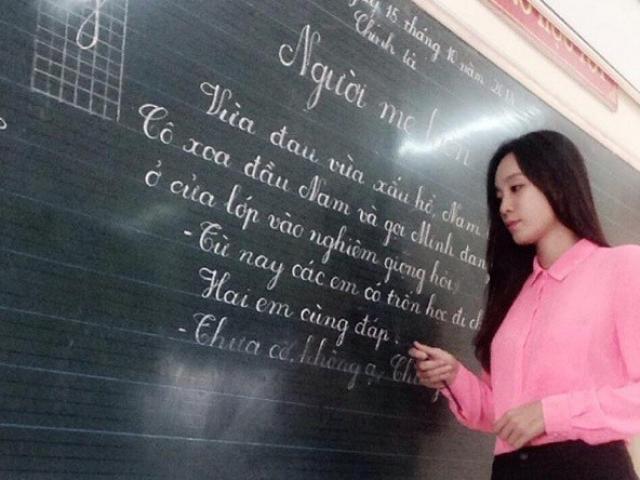 15 tháng 10 năm
Chính tả
Người mẹ hiền
Vừa đau vừa xấu hổ, Nam
Cô xoa đầu Nam và gọi Minh đan
ở cửa lớp vào nghiêm giọng hỏi:
- Từ nay các em có trốn học đi ch
Hai em cùng đáp.
- Thưa cô, không ạ. Ch